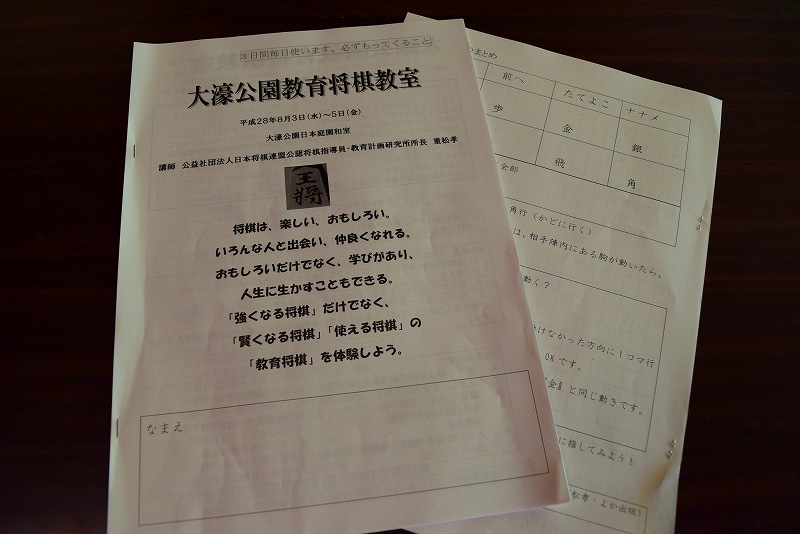 3日間毎日使います。必ずもってくること
大濠公園教育将棋教室
平成28年8月3日(水)~5日(金)
大濠公園日本庭園和室
講師 公益社団法人日本将棋連盟公認将棋指導員・教育計画研究所所長 重松孝
王将
将棋は、楽しい、おもしろい。
いろんな人と出会い、仲良くなれる。
おもしろいだけでなく、学びがあり、
人生に生かすこともできる。
「強くなる将棋」だけでなく、
「賢くなる将棋」「使える将棋」の
「教育将棋」を体験しよう。
なまえ
のまとめ
前へ たてよこ ナナメ
歩 金 銀
飛 角
全部
角行(かどに行く)
は、相手陣内にある駒が動いたら、
動く?
けなかった方向に1コマ行
OKです。
金』と同じ動きです。
に指してみよう!
松孝・よか出版)